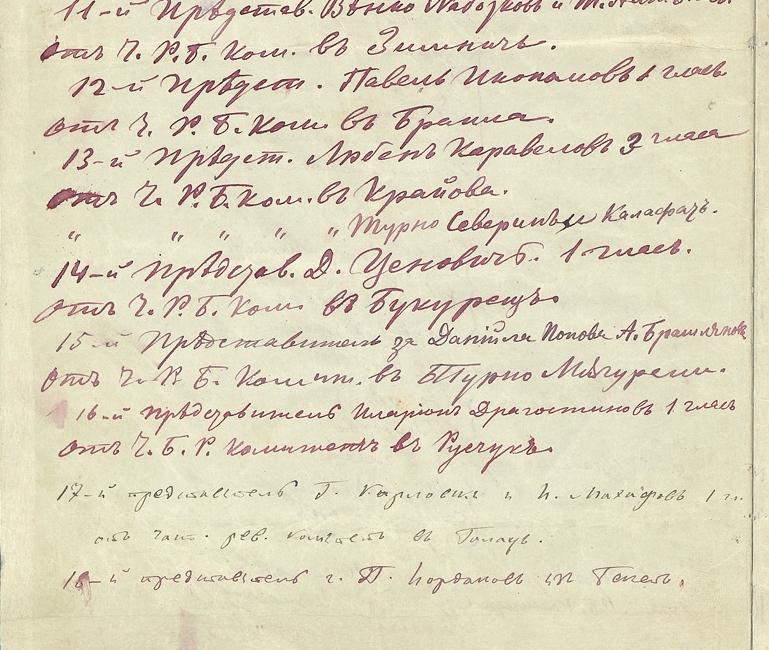 11-й Прѣдстав.
отъ Ч. Р. Б. Ком. въ Зимничъ.
12-й Прѣдст. Павелъ Икономовъ 1 гласъ
отъ Ч. Р. Б. Ком. въ Браила.
13-й Прѣдст. Любенъ Каравеловъ 3 гласа
отъ Ч. Р. Б. Ком. въ Крайова.
" " " " " Турно Северинъ и Калафатъ.
14-й Прѣдстав. Д. Ценовичъ. 1 гласъ.
отъ Ч. Р. Б. Ком. въ Букурещъ.
15-й Прѣдставителъ за Данйила Попова А.
отъ Ч. Р. Б. Комит. въ Турно Мѫгурели.
16-й Прѣдставителъ Иларионъ Драгостиновъ 1 гласъ
отъ Ч. Б. Р. Комитетъ въ Русчукъ.
17-й представителъ Г. и И. 1 гл.
отъ Част. рев. комитетъ въ Галацъ.
18-й представителъ г. П. Иорданов